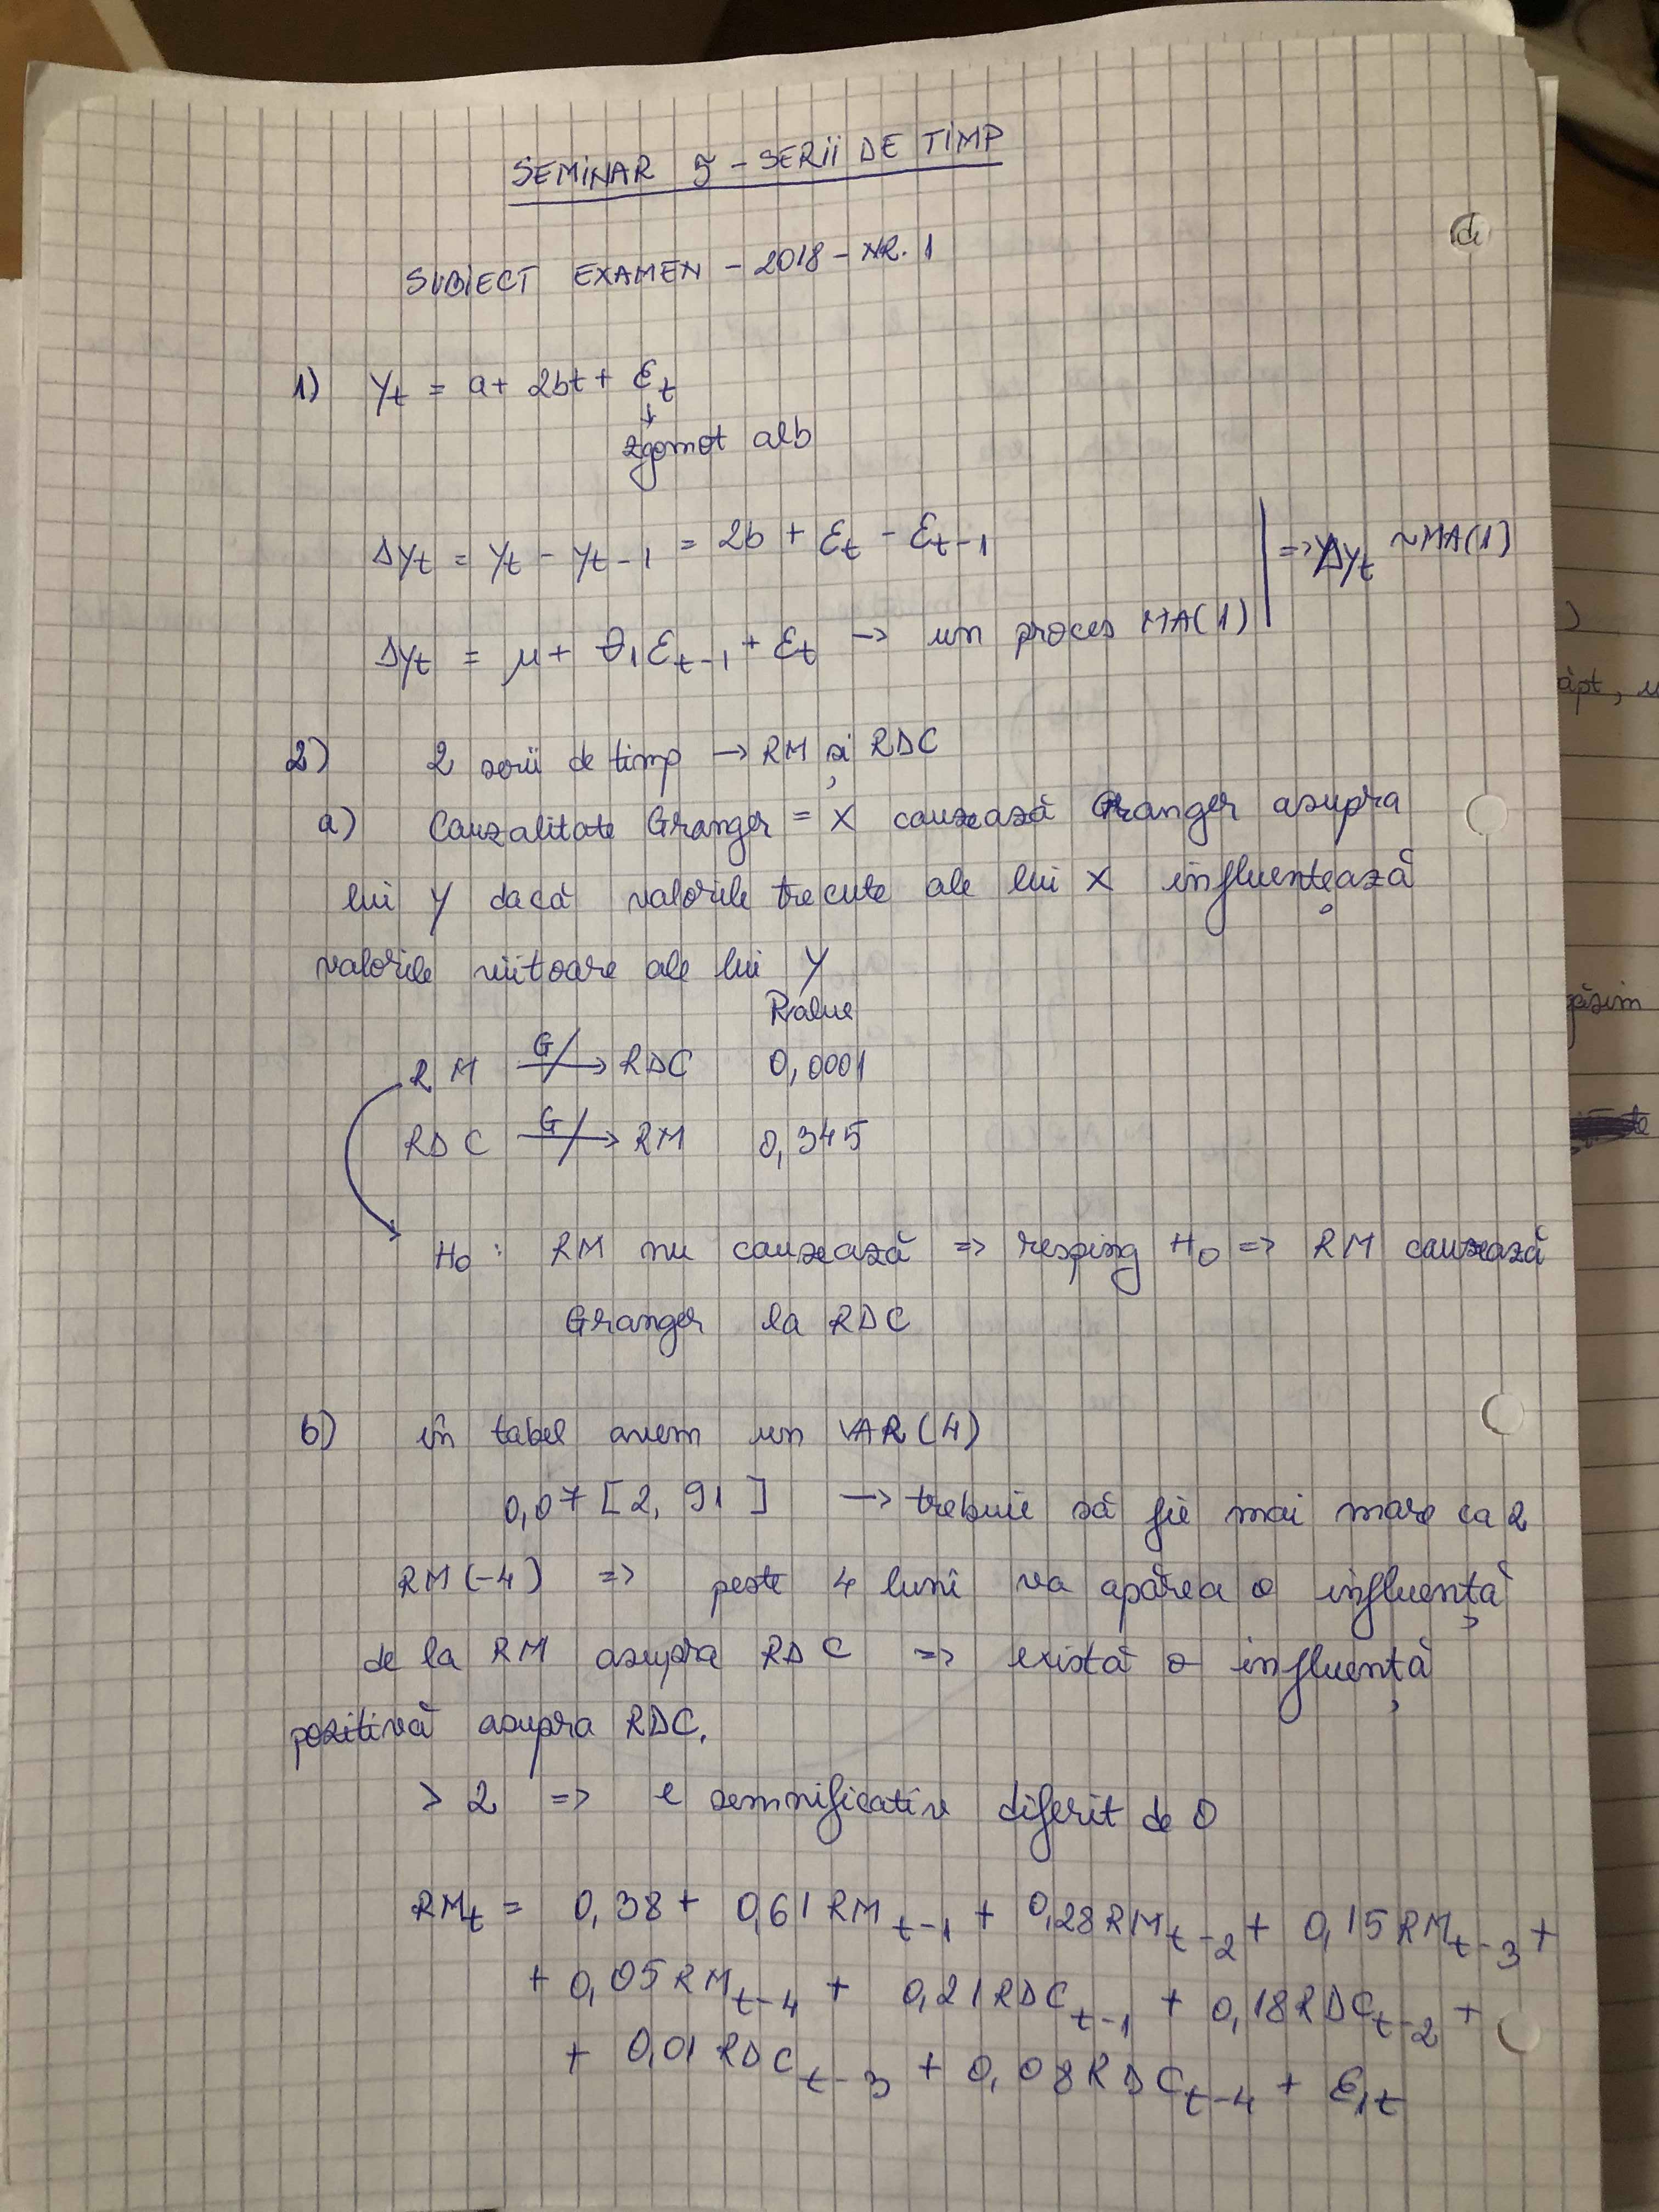 SEMINAR 5 - SERII DE TIMP
SUBIECT EXAMEN - 2018 - NR. 1
1) Yt = a + 2bt + Ɛt
↓
zgomot alb
ΔYt = Yt - Yt-1 = 2b + Ɛt - Ɛt-1
=> ΔYt ~ MA(1)
ΔYt = μ + θ1Ɛt-1 + Ɛt -> un proces MA(1)
2) 2 serii de timp -> RM și RDC
a) Cauzalitate Granger = X cauzează Granger asupra
lui Y dacă valorile trecute ale lui X influențează
valorile viitoare ale lui Y
Pvalue
RM G/-> RDC 0,0001
RDC G/-> RM 0,345
H0: RM nu cauzează => resping H0 => RM cauzează
Granger la RDC
b) în tabel avem un VAR(4)
0,07 [2,91] -> trebuie să fie mai mare ca 2
RM(-4) => peste 4 luni va apărea o influență
de la RM asupra RDC => există o influență
pozitivă asupra RDC.
> 2 => e semnificativ diferit de 0
RMt = 0,38 + 0,61RMt-1 + 0,28RMt-2 + 0,15RMt-3 +
+ 0,05RMt-4 + 0,21RDCt-1 + 0,18RDCt-2 +
+ 0,01RDCt-3 + 0,08RDCt-4 + Ɛ1t
ăpt, u
găsim